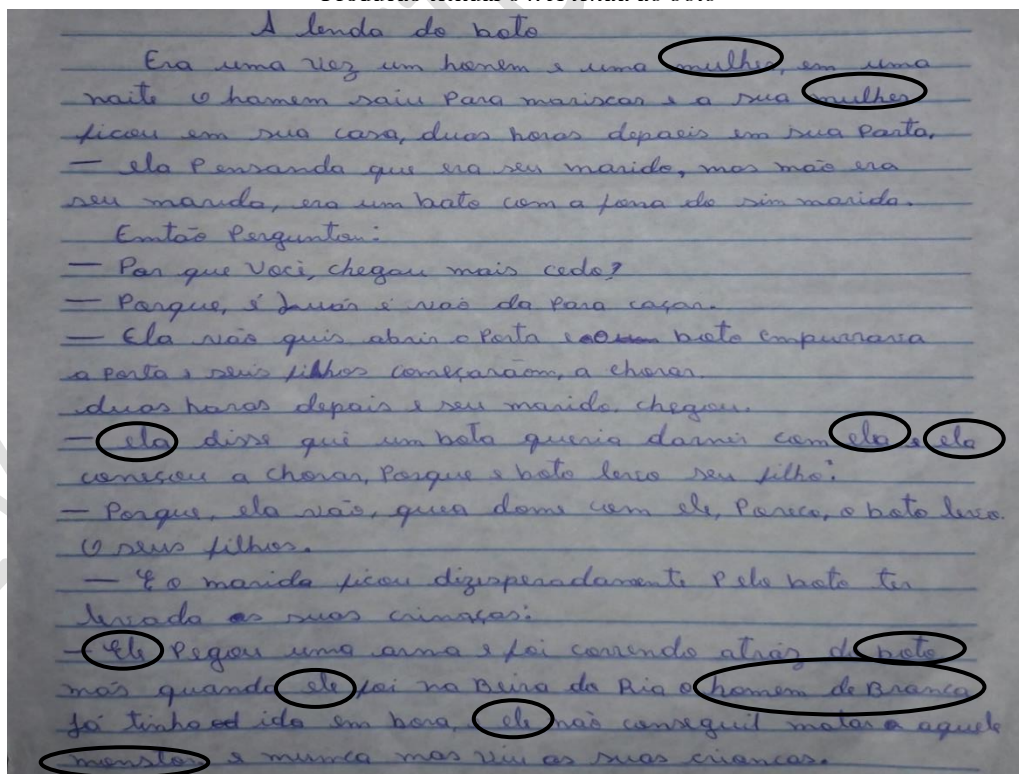 A lenda do boto
Era uma vez um homem e uma mulher, em uma
noite o homem saiu Para mariscar e a sua mulher
ficou em sua casa, duas horas depois em sua Porta.
— ela Pensando que era seu marido, mas não era
seu marido, era um boto com a do marido.
Emtão Perguntou:
— Por que você, chegou mais cedo?
— Porque, é e não da Para caçar.
— Ela não quis abrir a Porta boto empurrava
a Porta e seus filhos começaraõm, a chorar.
duas horas depois e seu marido, chegou.
— ela disse que um boto queria dormir com ela e ela
começou a chorar, Porque o boto levo seu filho:
— Porque, ela não, quea domi com ele, o boto levo.
O seus filhos.
— E o marido ficou dizesperadamente Pelo boto ter
levado as suas crianças:
— Ele Pegou uma arma e foi correndo atráz do boto
mas quando ele foi na Beira do Rio o homem de Branco
já tinha ido em bora, ele não conseguil matar a aquele
monstor e numca mas viu as suas criancas.